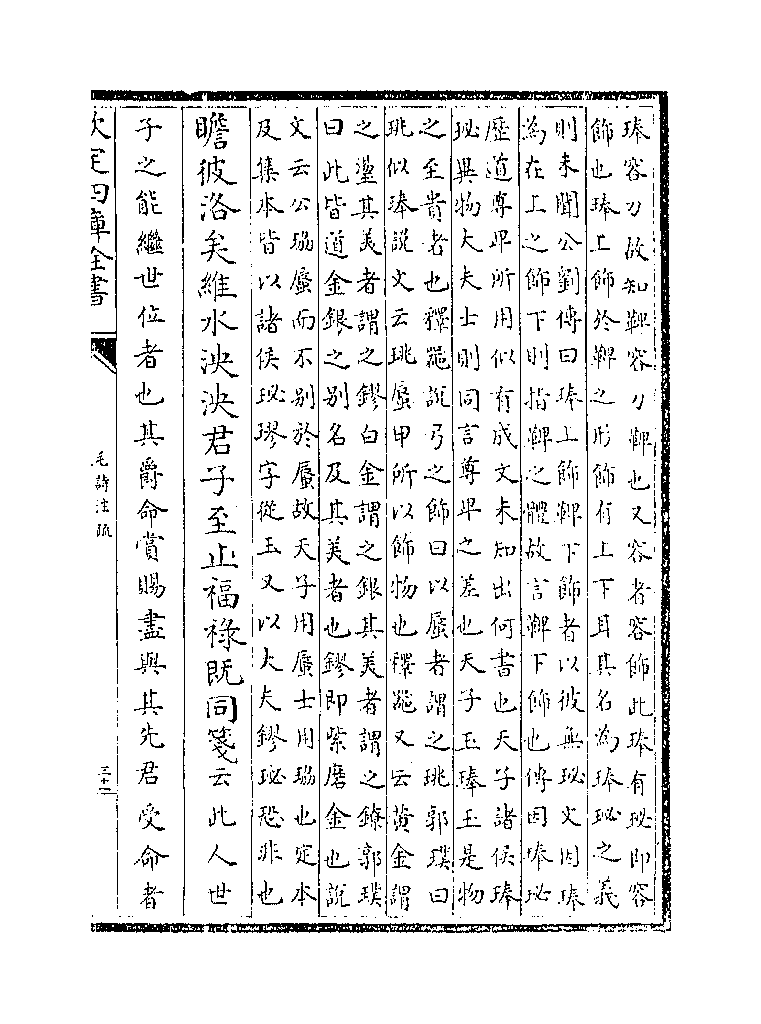 琫容刀故知鞞容刀鞞也又容者容飾此琫有珌即容
飾也琫上飾於鞞之形飾有上下耳其名為琫珌之義
則未聞公劉傳曰琫上飾鞞下飾者以彼無珌文因琫
為在上之飾下則指鞞之體故言鞞下飾也傳因琫珌
歷道尊卑所用似有成文未知出何書也天子諸侯琫
珌異物大夫士則同言尊卑之差也天子玉琫玉是物
之至貴者也釋器說弓之飾曰以蜃者謂之珧郭璞曰
珧似琫說文云珧蜃甲所以飾物也釋器又云黃金謂
之璗其美者謂之鏐白金謂之銀其美者謂之鐐郭璞
曰此皆道金銀之別名及其美者也鏐即紫磨金也說
文云公珕蜃而不別於蜃故天子用蜃士用珕也定本
及集本皆以諸侯珌璆字從玉又以大夫鏐珌恐非也
瞻彼洛矣維水泱泱君子至止福祿既同箋云此人世
子之能繼世位者也其爵命賞賜盡與其先君受命者
欽定四庫全書
毛詩注疏
三十二